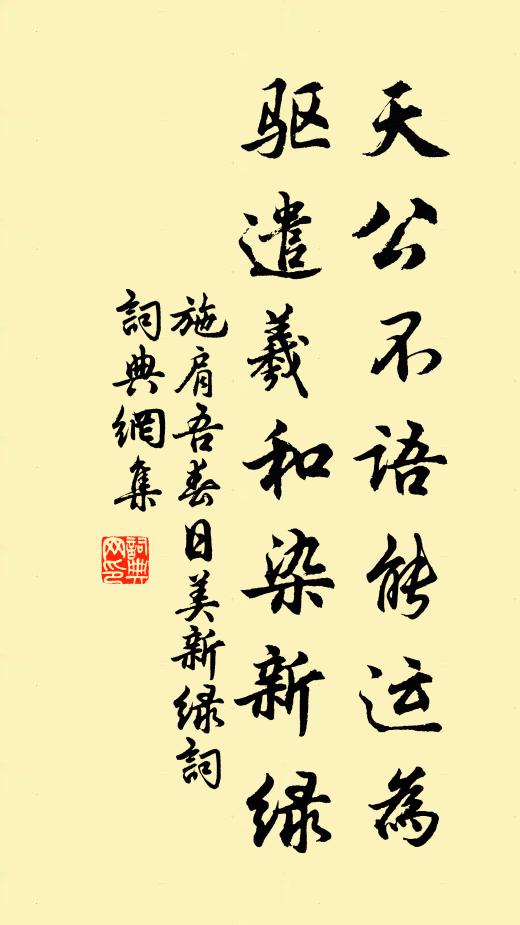 天公不语能运为
驱遣羲和染新绿
施肩吾春日美新绿詞
詞典網集
詞典網印